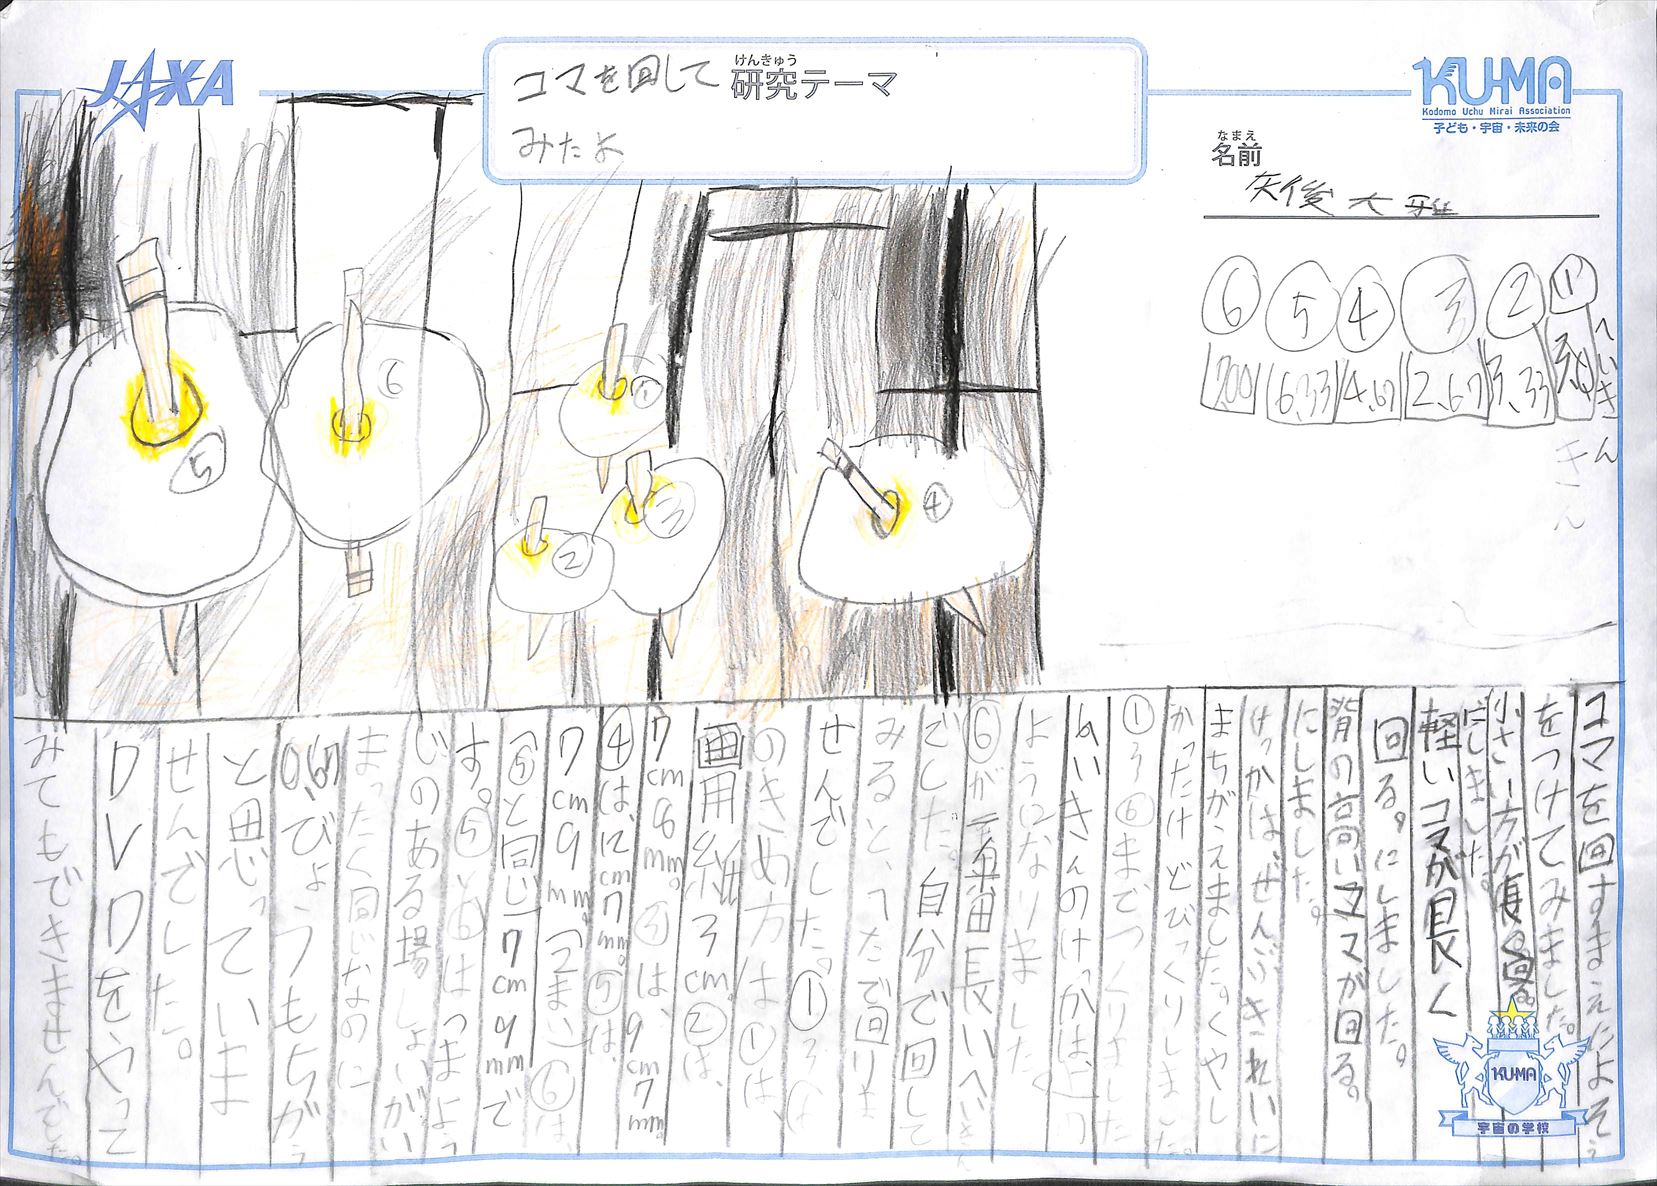 JAXA
コマを回して
みたよ
けんきゅう
研究テーマ
KU-MA
Kodomo Uchu Mirai Association
子ども・宇宙・未来の会
なまえ
名前
大雅
へいきん
きん
① ② ③ ④ ⑤ ⑥
3.33 2.67 4.67 6.33 7.00
⑤
⑥
①
②
③
④
コマを回すまえによそう
をつけてみました。
小さい方が長く回る。
にしました。
軽いコマが長く
回る。にしました。
背の高いコマが回る。
にしました。
けっかはぜんぶきれいに
まちがえました。くやし
かったけどびっくりしました。
①〜⑥までつくりました
へいきんのけっかは、上の
ようになりました。
⑥が一番長いへいきん
でした。自分で回して
みると、へたで回りま
せんでした。①〜⑥は
のきめ方は①は、
画用紙3cm。②は、
7cm8mm。③は、9cm7mm。
④は、12cm7mm。⑤は、
7cm9mm(2まい)⑥は、
(⑤と同じ)7cm9mmで
す。⑤と⑥はつまよう
じのある場しょいがい
まったく同じなのに
0.67びょうもちがう
と思っていま
せんでした。
みてもできませんでした。
KU-MA
宇宙の学校